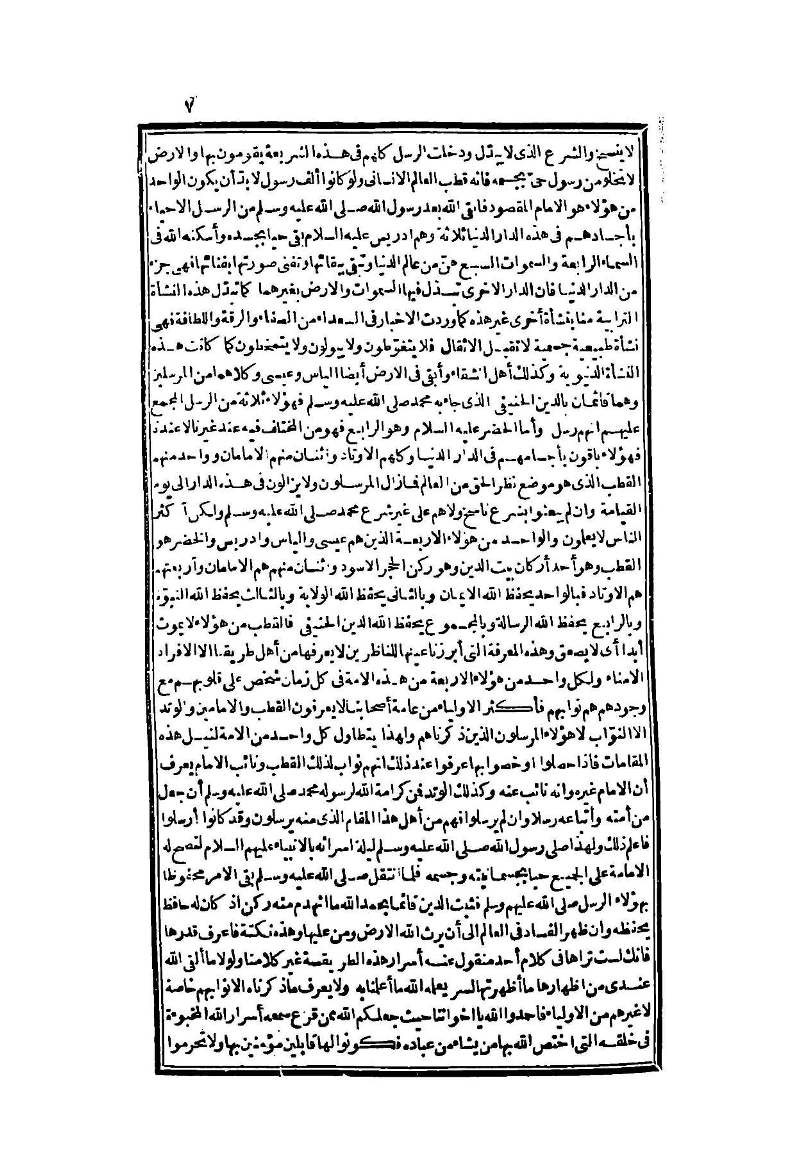 ٧
لا ينسخ والشرع الذى لا يبدّل ودخلت الرسل كلهم فى هذه الشريعة يقومون بها والارض
لا تخلو من رسول حىّ بجسمه فانه قطب العالم الانسانى ولو كانوا ألف رسول لا بدّ أن يكون الواحد
من هؤلاء هو الامام المقصود فابقى الله بعد رسول الله صلى الله عليه وسلم من الرسل الاحياء
بأجسادهم فى هذه الدار الدنيا ثلاثة وهم ادريس عليه السلام بقى حيا بجسده وأسكنه الله فى
السماء الرابعة والسموات السبع هنّ من عالم الدنيا وتبقى ببقائها وتفنى صورتها بفنائها فهى جزء
من الدار الدنيا فان الدار الاخرى تبدّل فيها السموات والارض بغيرهما كما تبدّل هذه النشأة
الترابية منا بنشأة أخرى غير هذه كما وردت الاخبار فى السعداء من الصفاء والرقة واللطافة فهى
نشأة طبيعية جسمية لا تقبل الاثقال فلا يتغوّطون ولا يبولون ولا يتمخطون كما كانت هذه
النشأة الدنيوية وكذلك أهل الشقاء وأبقى فى الارض أيضا الياس وعيسى وكلاهما من المرسلين
وهما قائمان بالدين الحنيفى الذى جاء به محمد صلى الله عليه وسلم فهؤلاء ثلاثة من الرسل المجمع
عليهم انهم رسل وأما الخضر عليه السلام وهو الرابع فهو من المختلف فيه عند غيرنا لا عندنا
فهؤلاء باقون بأجسامهم فى الدار الدنيا وكلهم الاوتاد واثنان منهم الامامان وواحد منهم
القطب الذى هو موضع نظر الحق من العالم فمازال المرسلون ولا يزالون فى هذه الدار الى يوم
القيامة وان لم يبعثوا بشرع ناسخ ولا هم على غير شرع محمد صلى الله عليه وسلم ولكن أكثر
الناس لا يعلمون والواحد من هؤلاء الاربعة الذين هم عيسى والياس وادريس والخضر هو
القطب وهو أحد أركان بيت الدين وهو ركن الحجر الاسود واثنان منهم هم الامامان وأربعتهم
هم الاوتاد فبالواحد يحفظ الله الايمان وبالثانى يحفظ الله الولاية وبالثالث يحفظ الله النبوّة
وبالرابع يحفظ الله الرسالة وبالمجموع يحفظ الله الدين الحنيفى فالقطب من هؤلاء لا يموت
أبدا أى لا يصعق وهذه المعرفة التى أبرزنا عينها للناظرين لا يعرفها من أهل طريقنا الا الافراد
الامناء ولكل واحد من هؤلاء الاربعة من هذه الامة فى كل زمان شخص على قلوبهم مع
وجودهم هم نوابهم فأكثر الاولياء من عامة أصحابنا لا يعرفون القطب والامامين والوتد
الا النوّاب لا هؤلاء المرسلون الذين ذكرناهم ولهذا يتطاول كل واحد من الامة لنيل هذه
المقامات فاذا حصلوا او خصوا بها عرفوا عند ذلك انهم نواب لذلك القطب ونائب الامام يعرف
أن الامام غيره وانه نائب عنه وكذلك الوتد فمن كرامة الله لرسوله محمد صلى الله عليه وسلم أن جعل
من أمته وأتباعه رسلا وان لم يرسلوا فهم من أهل هذا المقام الذى منه يرسلون وقد كانوا أرسلوا
فاعلم ذلك ولهذا صلى رسول الله صلى الله عليه وسلم ليلة اسرائه بالانبياء عليهم السلام لتصح له
الامامة على الجميع حيا بجسمانيته وجسمه فلما انتقل صلى الله عليه وسلم بقى الامر محفوظا
بهؤلاء الرسل صلى الله عليهم وسلم فثبت الدين قائما بحمد الله ما انهدم منه ركن اذ كان له حافظ
يحفظه وان ظهر الفساد فى العالم الى أن يرث الله الارض ومن عليها وهذه نكتة فاعرف قدرها
فانك لست تراها فى كلام أحد منقول عنه أسرار هذه الطريقة غير كلامنا ولولا ما ألقى الله
عندى من اظهارها ما أظهرتها لسر يعلمه الله ما أعلمنا به ولا يعرف ما ذكرناه الا نوابهم خاصة
لا غيرهم من الاولياء فاحمدوا الله يا اخواننا حيث جعلكم الله ممن قرع سمعه أسرار الله المخبوءة
فى خلقه التى اختص الله بها من يشاء من عباده فكونوا لها قابلين مؤمنين بها ولا تحرموا